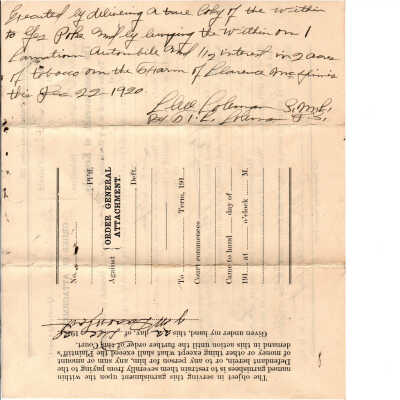 Executed by delivering a true Copy of the within
to Geo Poke and by levying the within on 1
Automobile and 1/2 interest in 2 acres
of tobacco on the Farm of Clarence
this 22 - 1920.
Coleman S.
By Coleman D.S.
No.
Pltff.
Against
ORDER GENERAL
ATTACHMENT.
Deft.
To Term, 191
Court commences
Came to hand day of
191 at o'clock M.
The object in serving this garnishment upon the within
named garnishees is to restrain them severally from paying to the
Defendant herein, or to any person for him, any sum or amount
of money or other thing except what shall exceed the Plaintiff's
demand in this action until the further order of this Court.
Given under my hand, this 22 day of Dec 1920